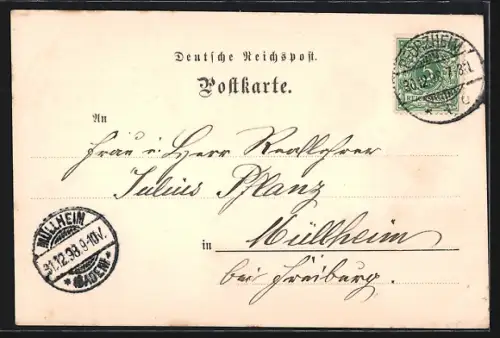 Deutsche Reichspost.
Postkarte.
PFORZHEIM
An
Frau u. Herr Reallehrer
Julius Pflanz
in Müllheim
bei Freiburg.
MÜLLHEIM
31.12.98.9-10V.
(BADEN)